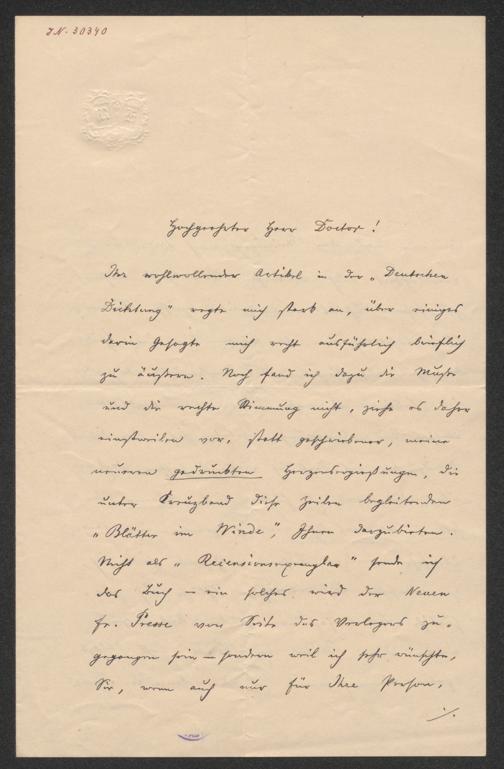 J.N. 30340
Hochgeehrter Herr Doctor!
Ihr wohlwollender Artikel in der „Deutschen
Dichtung" regte mich stark an, über einiges
darin Gesagte mich recht ausführlich brieflich
zu äußern. Noch fand ich dazu die Muße
und die rechte Stimmung nicht, ziehe es daher
einstweilen vor, statt geschriebener, meine
neueren gedruckten Herzensergießungen, die
unter Kreuzband diese Zeilen begleitenden
„Blätter im Winde", Ihnen darzubieten.
Nicht als „Recensionsexemplar" sende ich
das Buch – ein solches wird der Neuen
Fr. Presse von Seite des Verlegers zu-
gegangen sein – sondern weil ich sehr wünschte,
Sie, wenn auch nur für Ihre Person,
./.